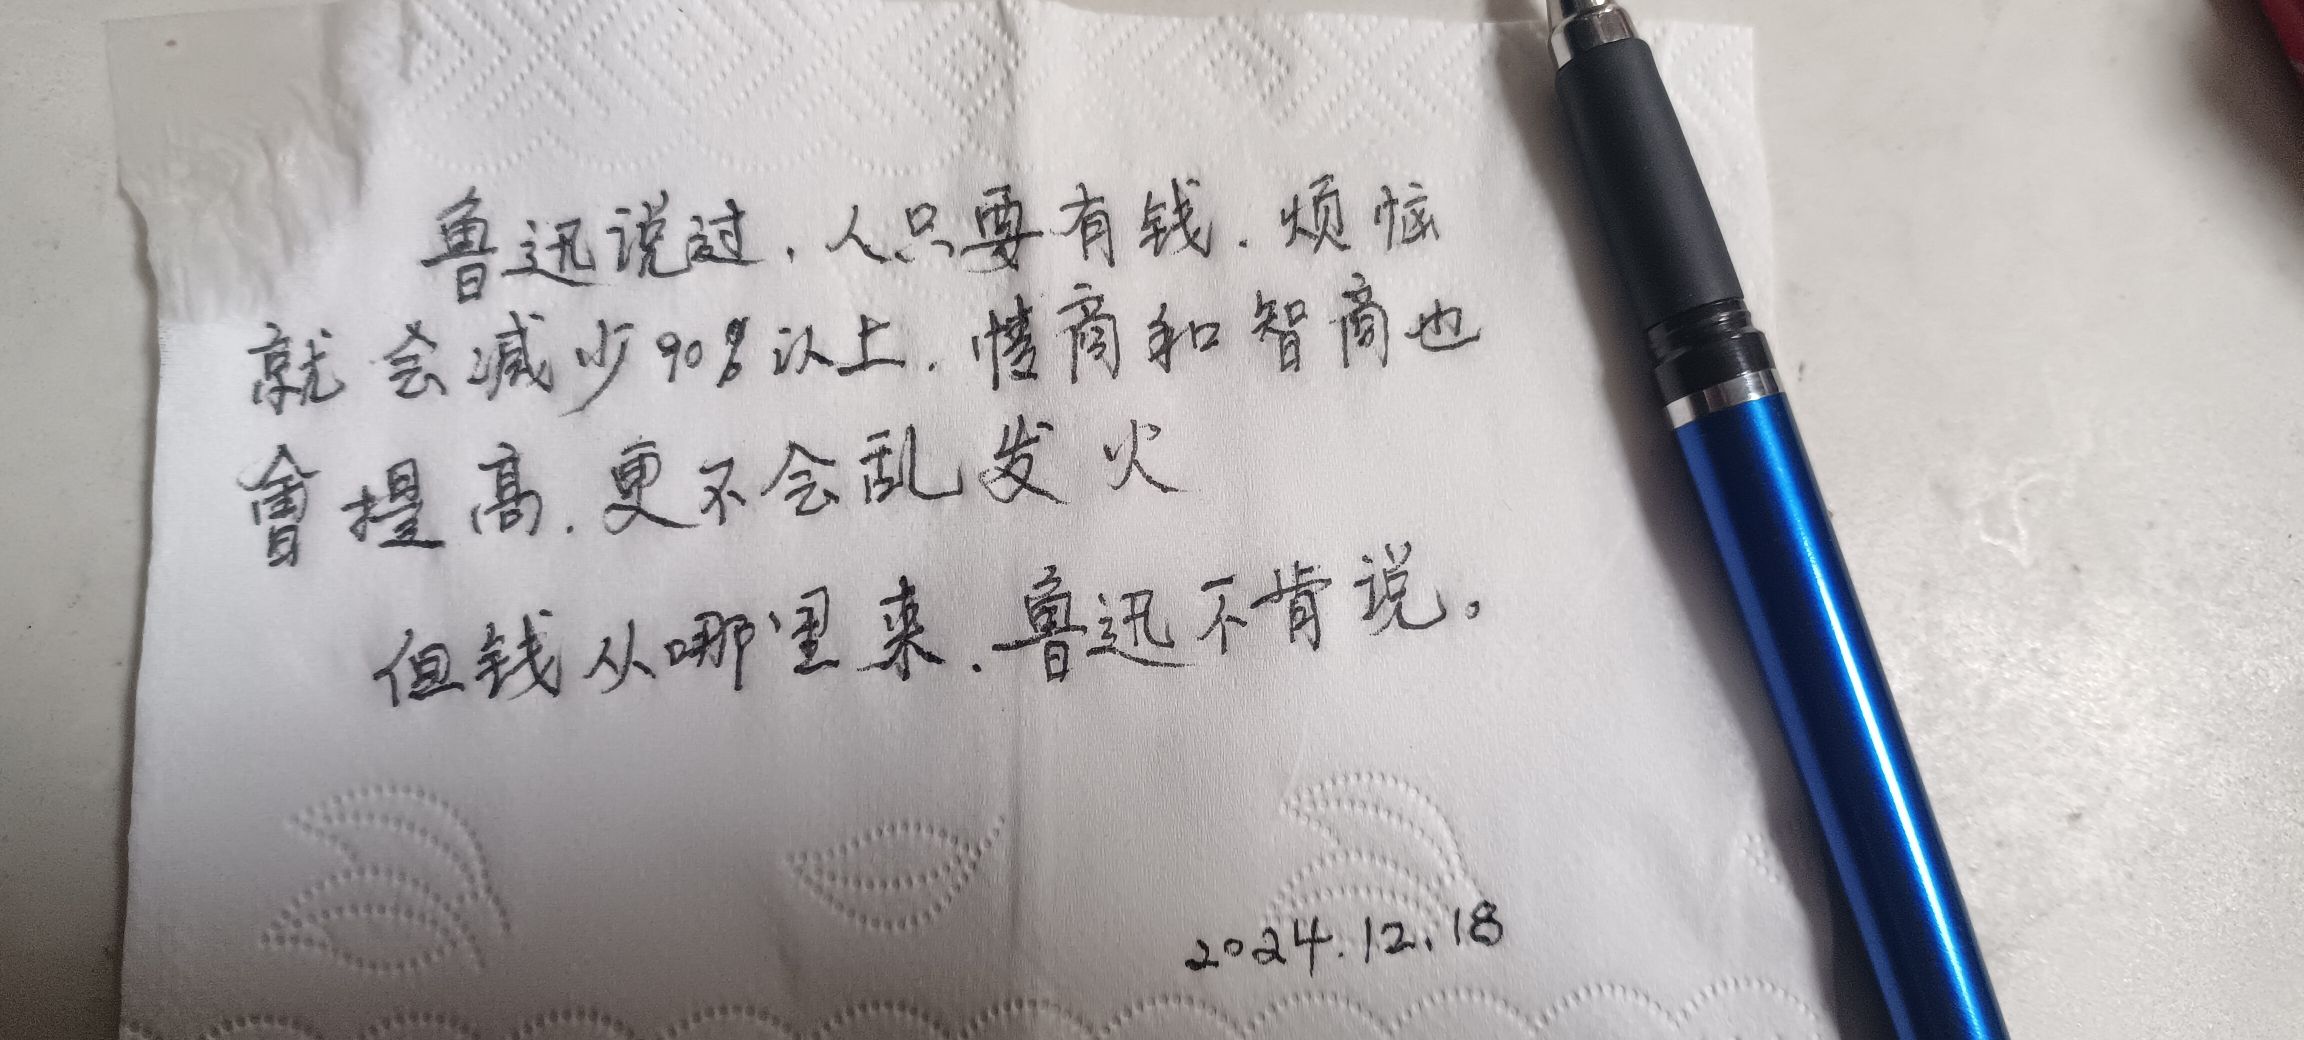 鲁迅说过.人只要有钱.烦恼
就会减少90%以上.情商和智商也
會提高.更不会乱发火
但钱从哪里来.鲁迅不肯说。
2024.12.18